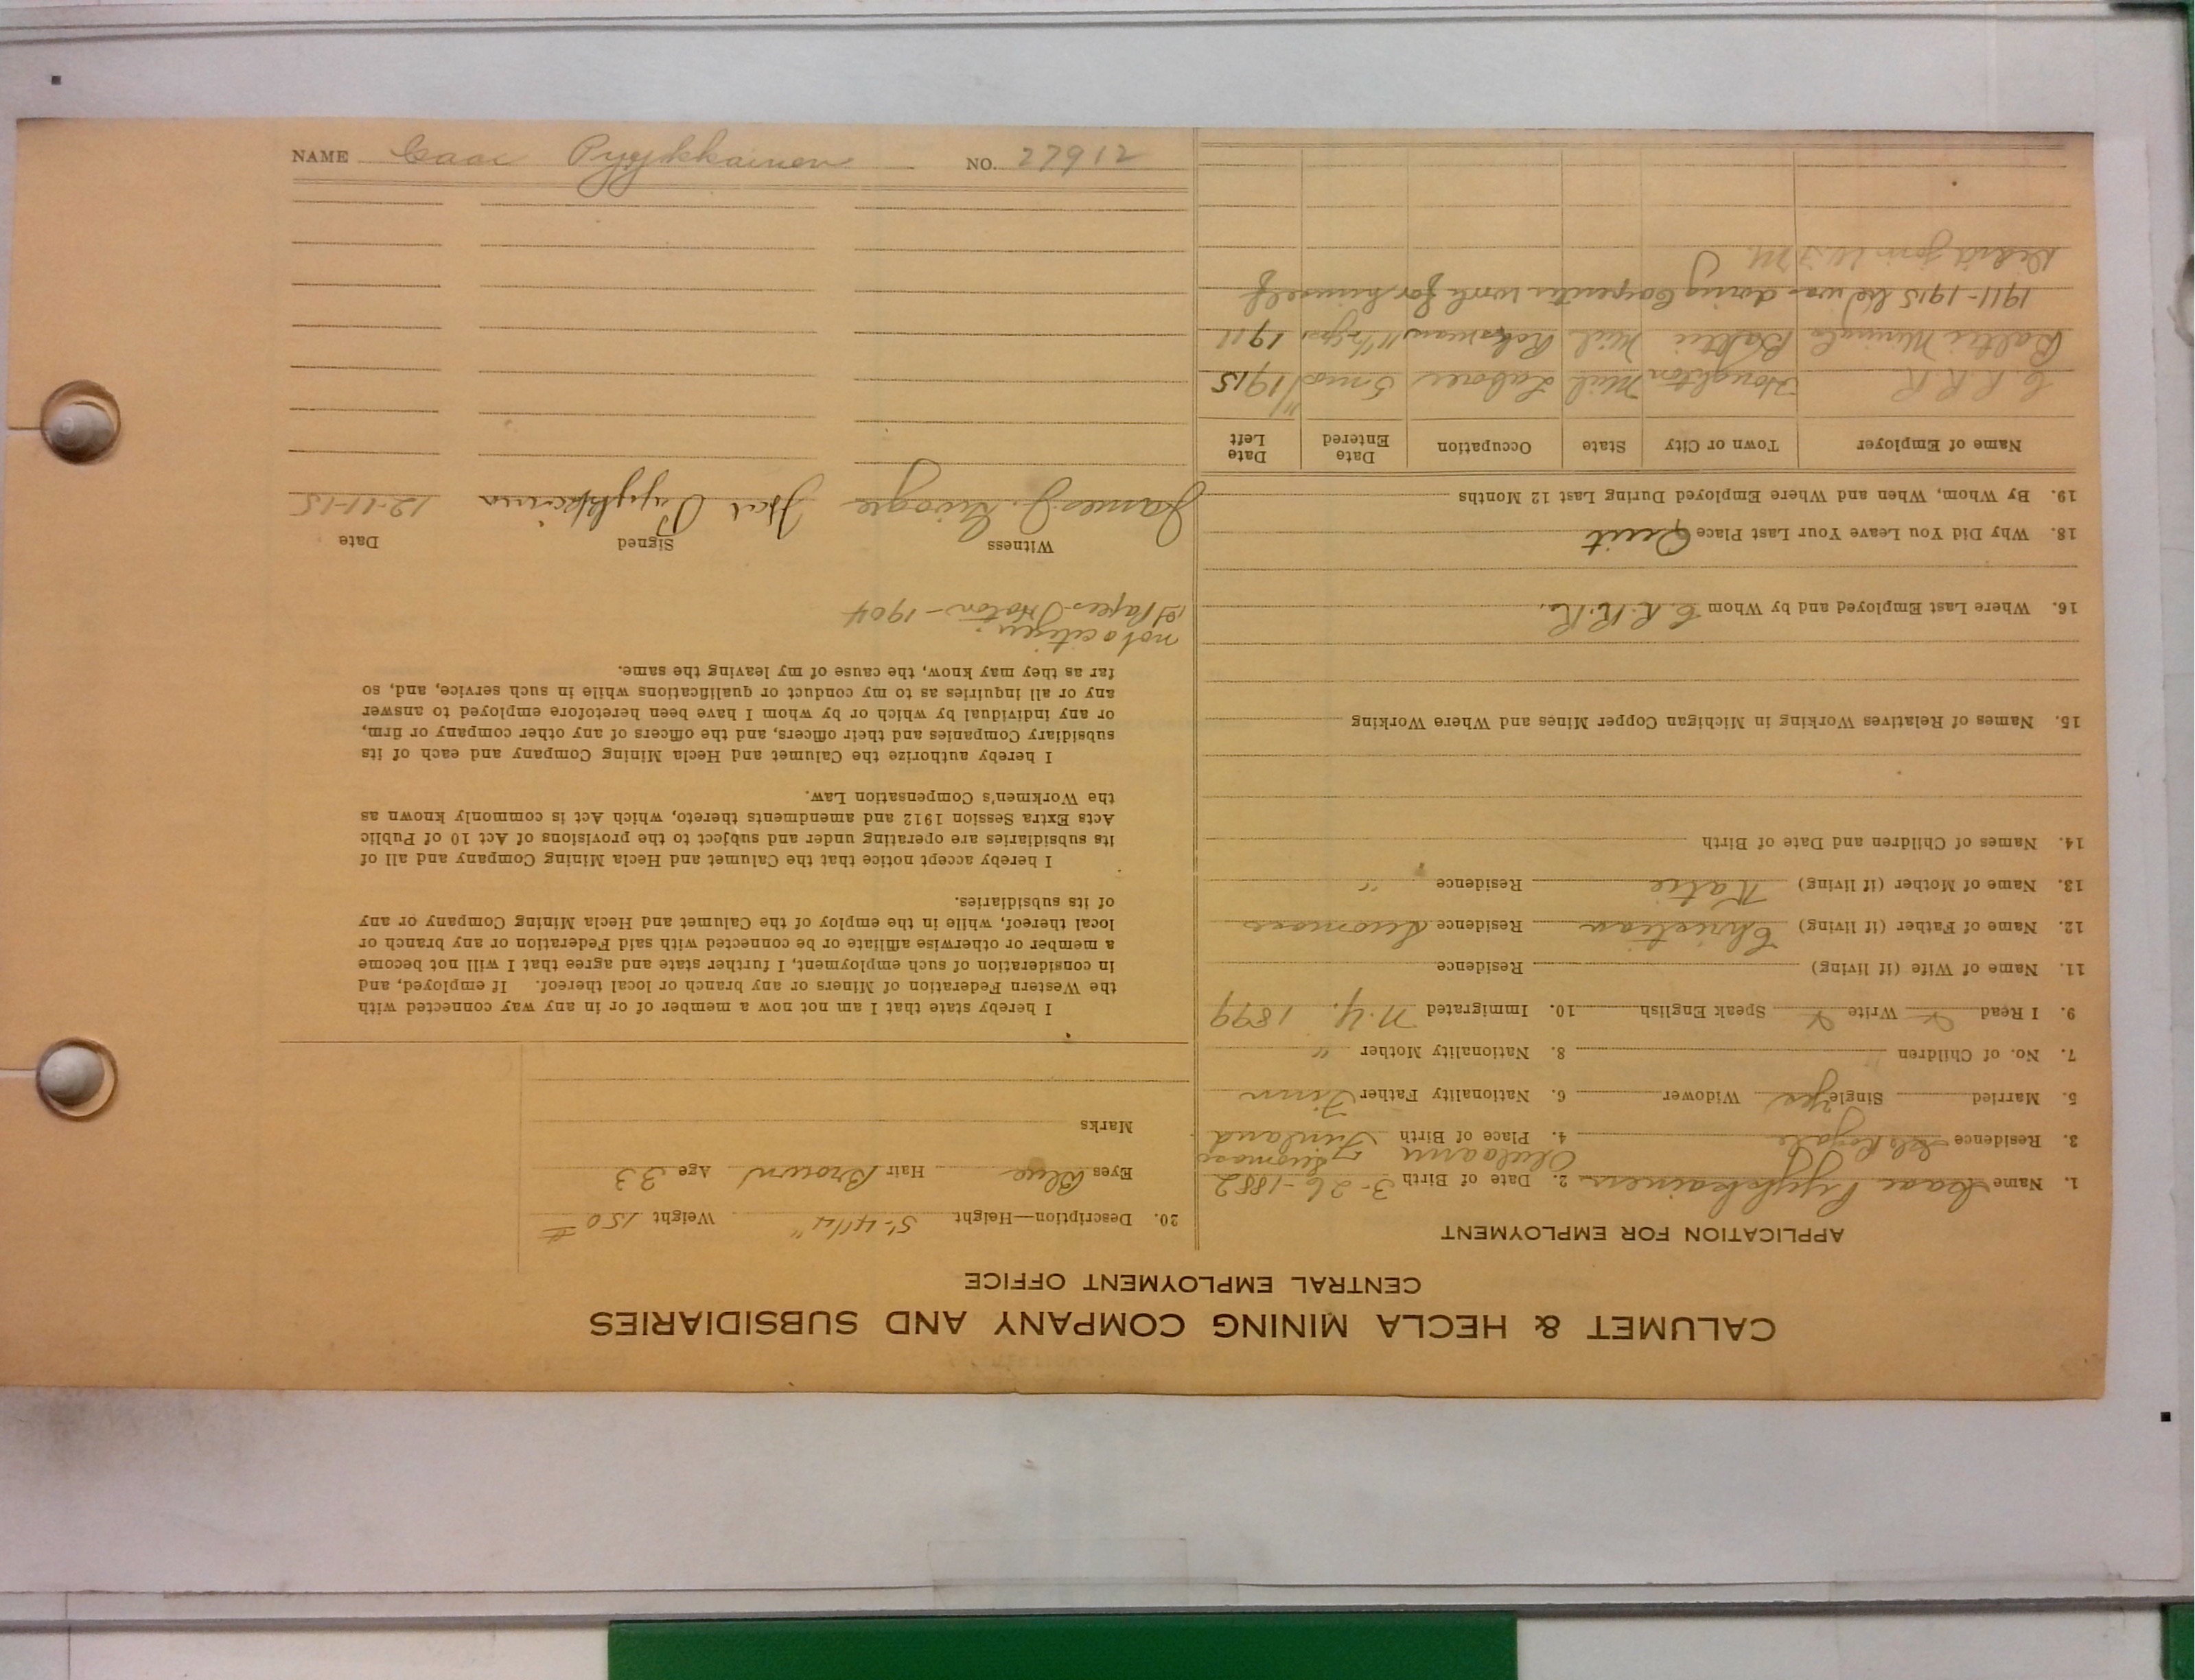 CALUMET & HECLA MINING COMPANY AND SUBSIDIARIES
CENTRAL EMPLOYMENT OFFICE
APPLICATION FOR EMPLOYMENT
1. Name Isaac Pyykkainen 2. Date of Birth 3-26-1882
Suomosi
3. Residence Isle Royale 4. Place of Birth Finland
5. Married Single Yes Widower 6. Nationality Father Finn
7. No. of Children 8. Nationality Mother "
9. I Read Write Speak English 10. Immigrated N.Y. 1899
11. Name of Wife (if living) Residence
12. Name of Father (if living) Christian Residence
13. Name of Mother (if living) Katie Residence "
14. Names of Children and Date of Birth
15. Names of Relatives Working in Michigan Copper Mines and Where Working
16. Where Last Employed and by Whom C.R.R.R. Co.
18. Why Did You Leave Your Last Place Quit
19. By Whom, When and Where Employed During Last 12 Months
Name of Employer Town or City State Occupation Date Entered Date Left
C.R.R.R. Houghton Mich Laborer 5 mos 11/1915
Baltic Mining Co Baltic Mich 11½ yrs 1911
1911-1915 he was doing Carpenter work for himself
Didn't join W.F.M.
20. Description—Height 5'-4 1/4" Weight 150 #
Eyes Blue Hair Brown Age 33
Marks
I hereby state that I am not now a member of or in any way connected with
the Western Federation of Miners or any branch or local thereof. If employed, and
in consideration of such employment, I further state and agree that I will not become
a member or otherwise affiliate or be connected with said Federation or any branch or
local thereof, while in the employ of the Calumet and Hecla Mining Company or any
of its subsidiaries.
I hereby accept notice that the Calumet and Hecla Mining Company and all of
its subsidiaries are operating under and subject to the provisions of Act 10 of Public
Acts Extra Session 1912 and amendments thereto, which Act is commonly known as
the Workmen's Compensation Law.
I hereby authorize the Calumet and Hecla Mining Company and each of its
subsidiary Companies and their officers, and the officers of any other company or firm,
or any individual by which or by whom I have been heretofore employed to answer
any or all inquiries as to my conduct or qualifications while in such service, and, so
far as they may know, the cause of my leaving the same.
not a citizen
1st Papers Hoton - 1904
Witness Signed Date
James J. Isak Pyykkainen 12-11-15
NAME Isaac Pyykkainen NO. 27912